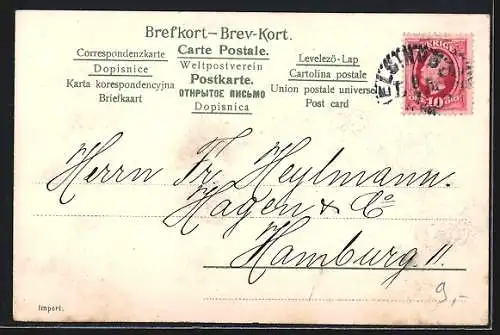 Brefkort–Brev-Kort.
Correspondenzkarte Carte Postale. Levelező-Lap
Dopisnice Weltpostverein Cartolina postale
Karta korespondencyjna Postkarte. Union postale universelle
Briefkaart ОТКРЫТОЕ ПИСЬМО Post card
Dopisnica
SVERIGE
10 ÖRE 10
Herrn Fr. Heylmann.
Hagen & Co
Hamburg 11.
9,-
Import.